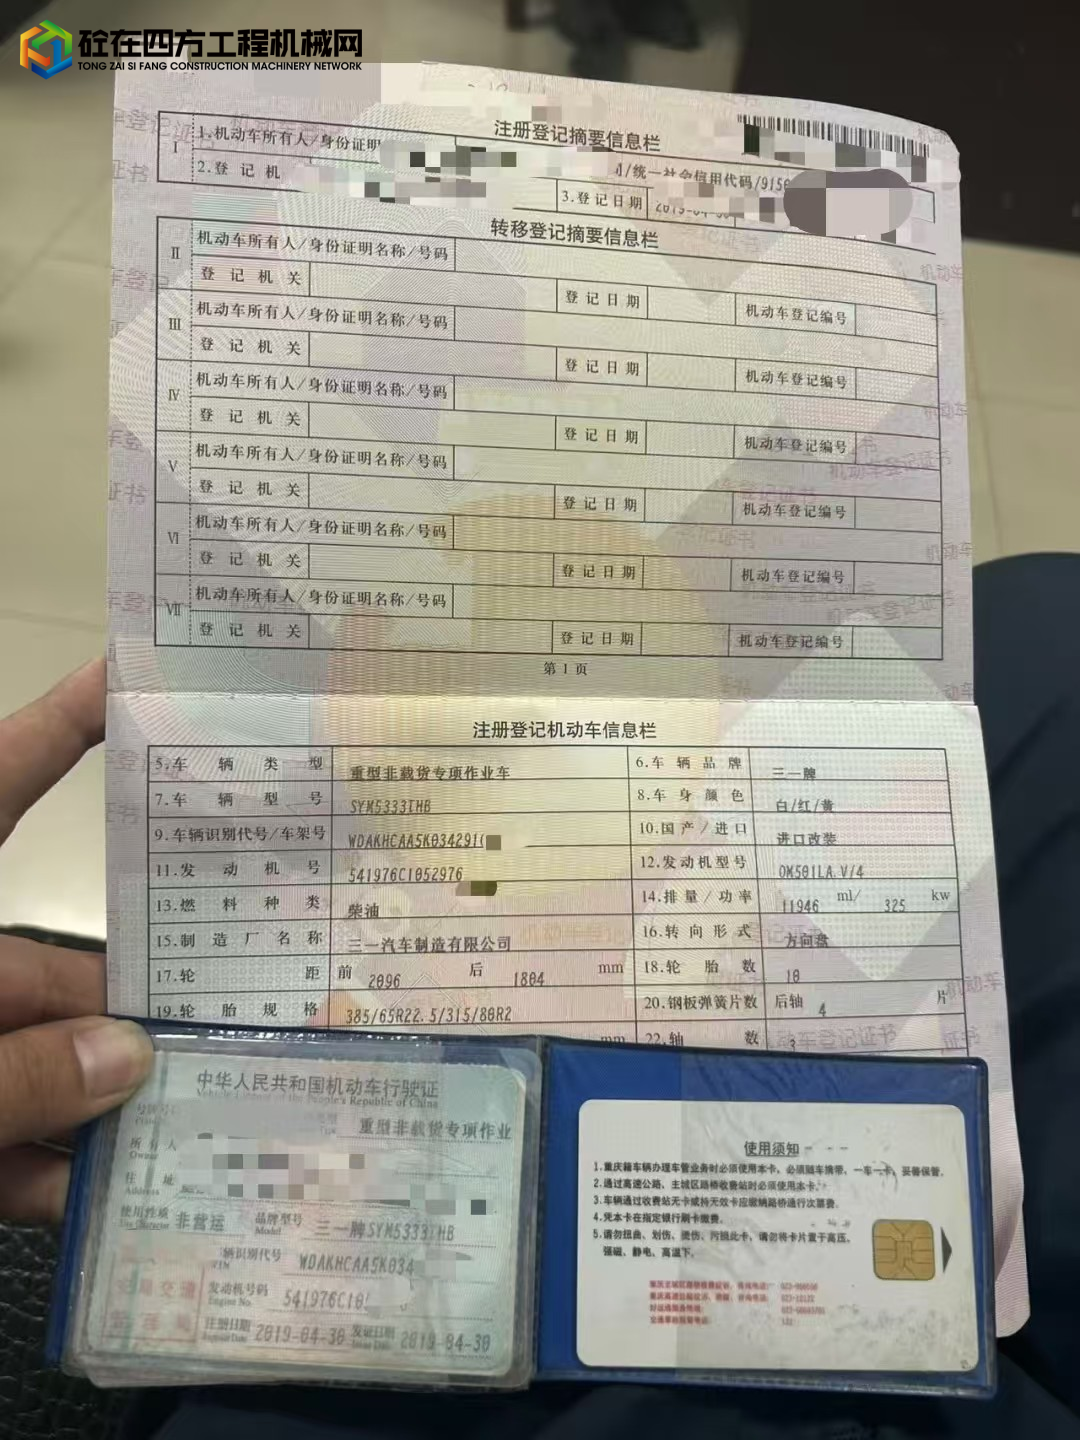 砼在四方工程机械网
TONG ZAI SI FANG CONSTRUCTION MACHINERY NETWORK
注册登记摘要信息栏
I
1.机动车所有人/身份证明
/统一社会信用代码/915
2.登记机
3.登记日期 2019-04-30
转移登记摘要信息栏
II 机动车所有人/身份证明名称/号码
登记机关 登记日期 机动车登记编号
III 机动车所有人/身份证明名称/号码
登记机关 登记日期 机动车登记编号
IV 机动车所有人/身份证明名称/号码
登记机关 登记日期 机动车登记编号
V 机动车所有人/身份证明名称/号码
登记机关 登记日期 机动车登记编号
VI 机动车所有人/身份证明名称/号码
登记机关 登记日期 机动车登记编号
VII 机动车所有人/身份证明名称/号码
登记机关 登记日期 机动车登记编号
第 1 页
注册登记机动车信息栏
5.车辆类型 重型非载货专项作业车 6.车辆品牌 三一牌
7.车辆型号 SYM5333THB 8.车身颜色 白/红/黄
9.车辆识别代号/车架号 WDAKHCAA5K034291 10.国产/进口 进口改装
11.发动机号 541976C1052976 12.发动机型号 OM501LA.V/4
13.燃料种类 柴油 14.排量/功率 11946 ml/ 325 kw
15.制造厂名称 三一汽车制造有限公司 16.转向形式 方向盘
17.轮距 前 2096 后 1804 mm 18.轮胎数 10
19.轮胎规格 385/65R22.5/315/80R2 20.钢板弹簧片数 后轴 4 片
mm 22.轴数 3
中华人民共和国机动车行驶证
Vehicle License of the People's Republic of China
重型非载货专项作业
所有人
Owner
住址
Address
使用性质 非营运 品牌型号 三一牌SYM5333THB
Use Character Model
车辆识别代号 WDAKHCAA5K034
VIN
发动机号码 541976C10
Engine No.
注册日期 2019-04-30 发证日期 2019-04-30
Register Date Issue Date
使用须知
1.重庆籍车辆办理车管业务时必须使用本卡，必须随车携带，一车一卡，妥善保管。
2.通过高速公路、主城区路桥收费站时必须使用本卡。
3.车辆通过收费站无卡或持无效卡应缴纳路桥通行次票费。
4.凭本卡在指定银行刷卡缴费。
5.请勿扭曲、划伤、烫伤、污损此卡，请勿将卡片置于高压、
强磁、静电、高温下。